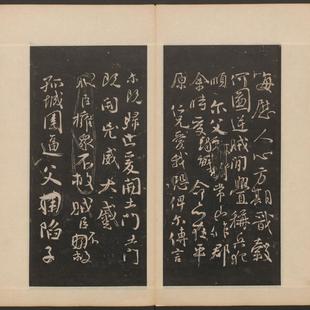 每慰人心方期戩穀
何圖逆賊閒釁稱兵犯
順爾父竭誠常山作郡
余時受命亦在平
原仁兄愛我恐俾爾傳言
爾既歸止爰開土門土門
既開兇威大蹙
賊臣擁衆不救賊臣不救
孤城圍逼父陷子